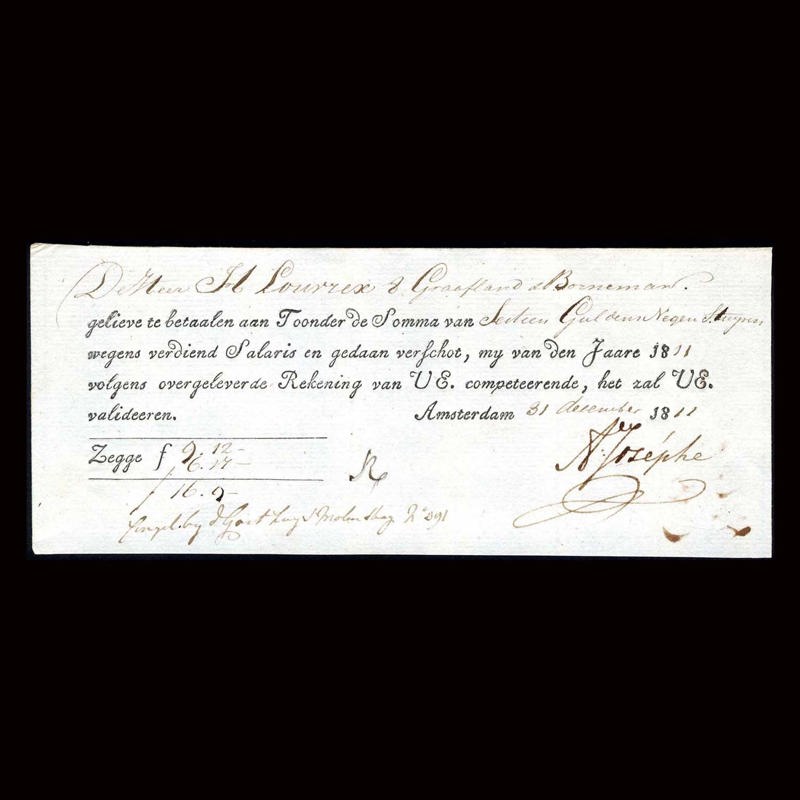 De Heer H Lourrex & Graafland & Borneman.
gelieve te betaalen aan Toonder de Somma van Sestien Guldens Negen Stuyvers
wegens verdiend Salaris en gedaan verschot, my van den Jaare 1811
volgens overgeleverde Rekening van UE. competeerende, het zal UE.
valideeren. Amsterdam 31 december 1811
Zegge f 9.12-
6.17-
16.9-
A. Joséphe
R
Cingel by d N° 291